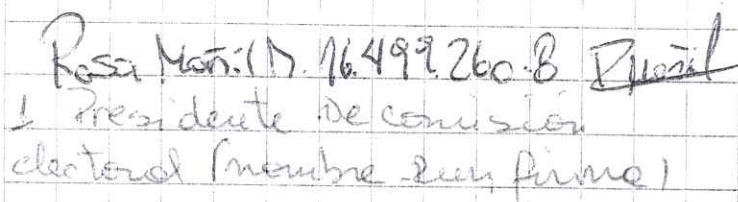 Rosa Mañil D. 16.499.260-8 RMañil
1 Presidente De comisión
electoral (nombre run, firma)